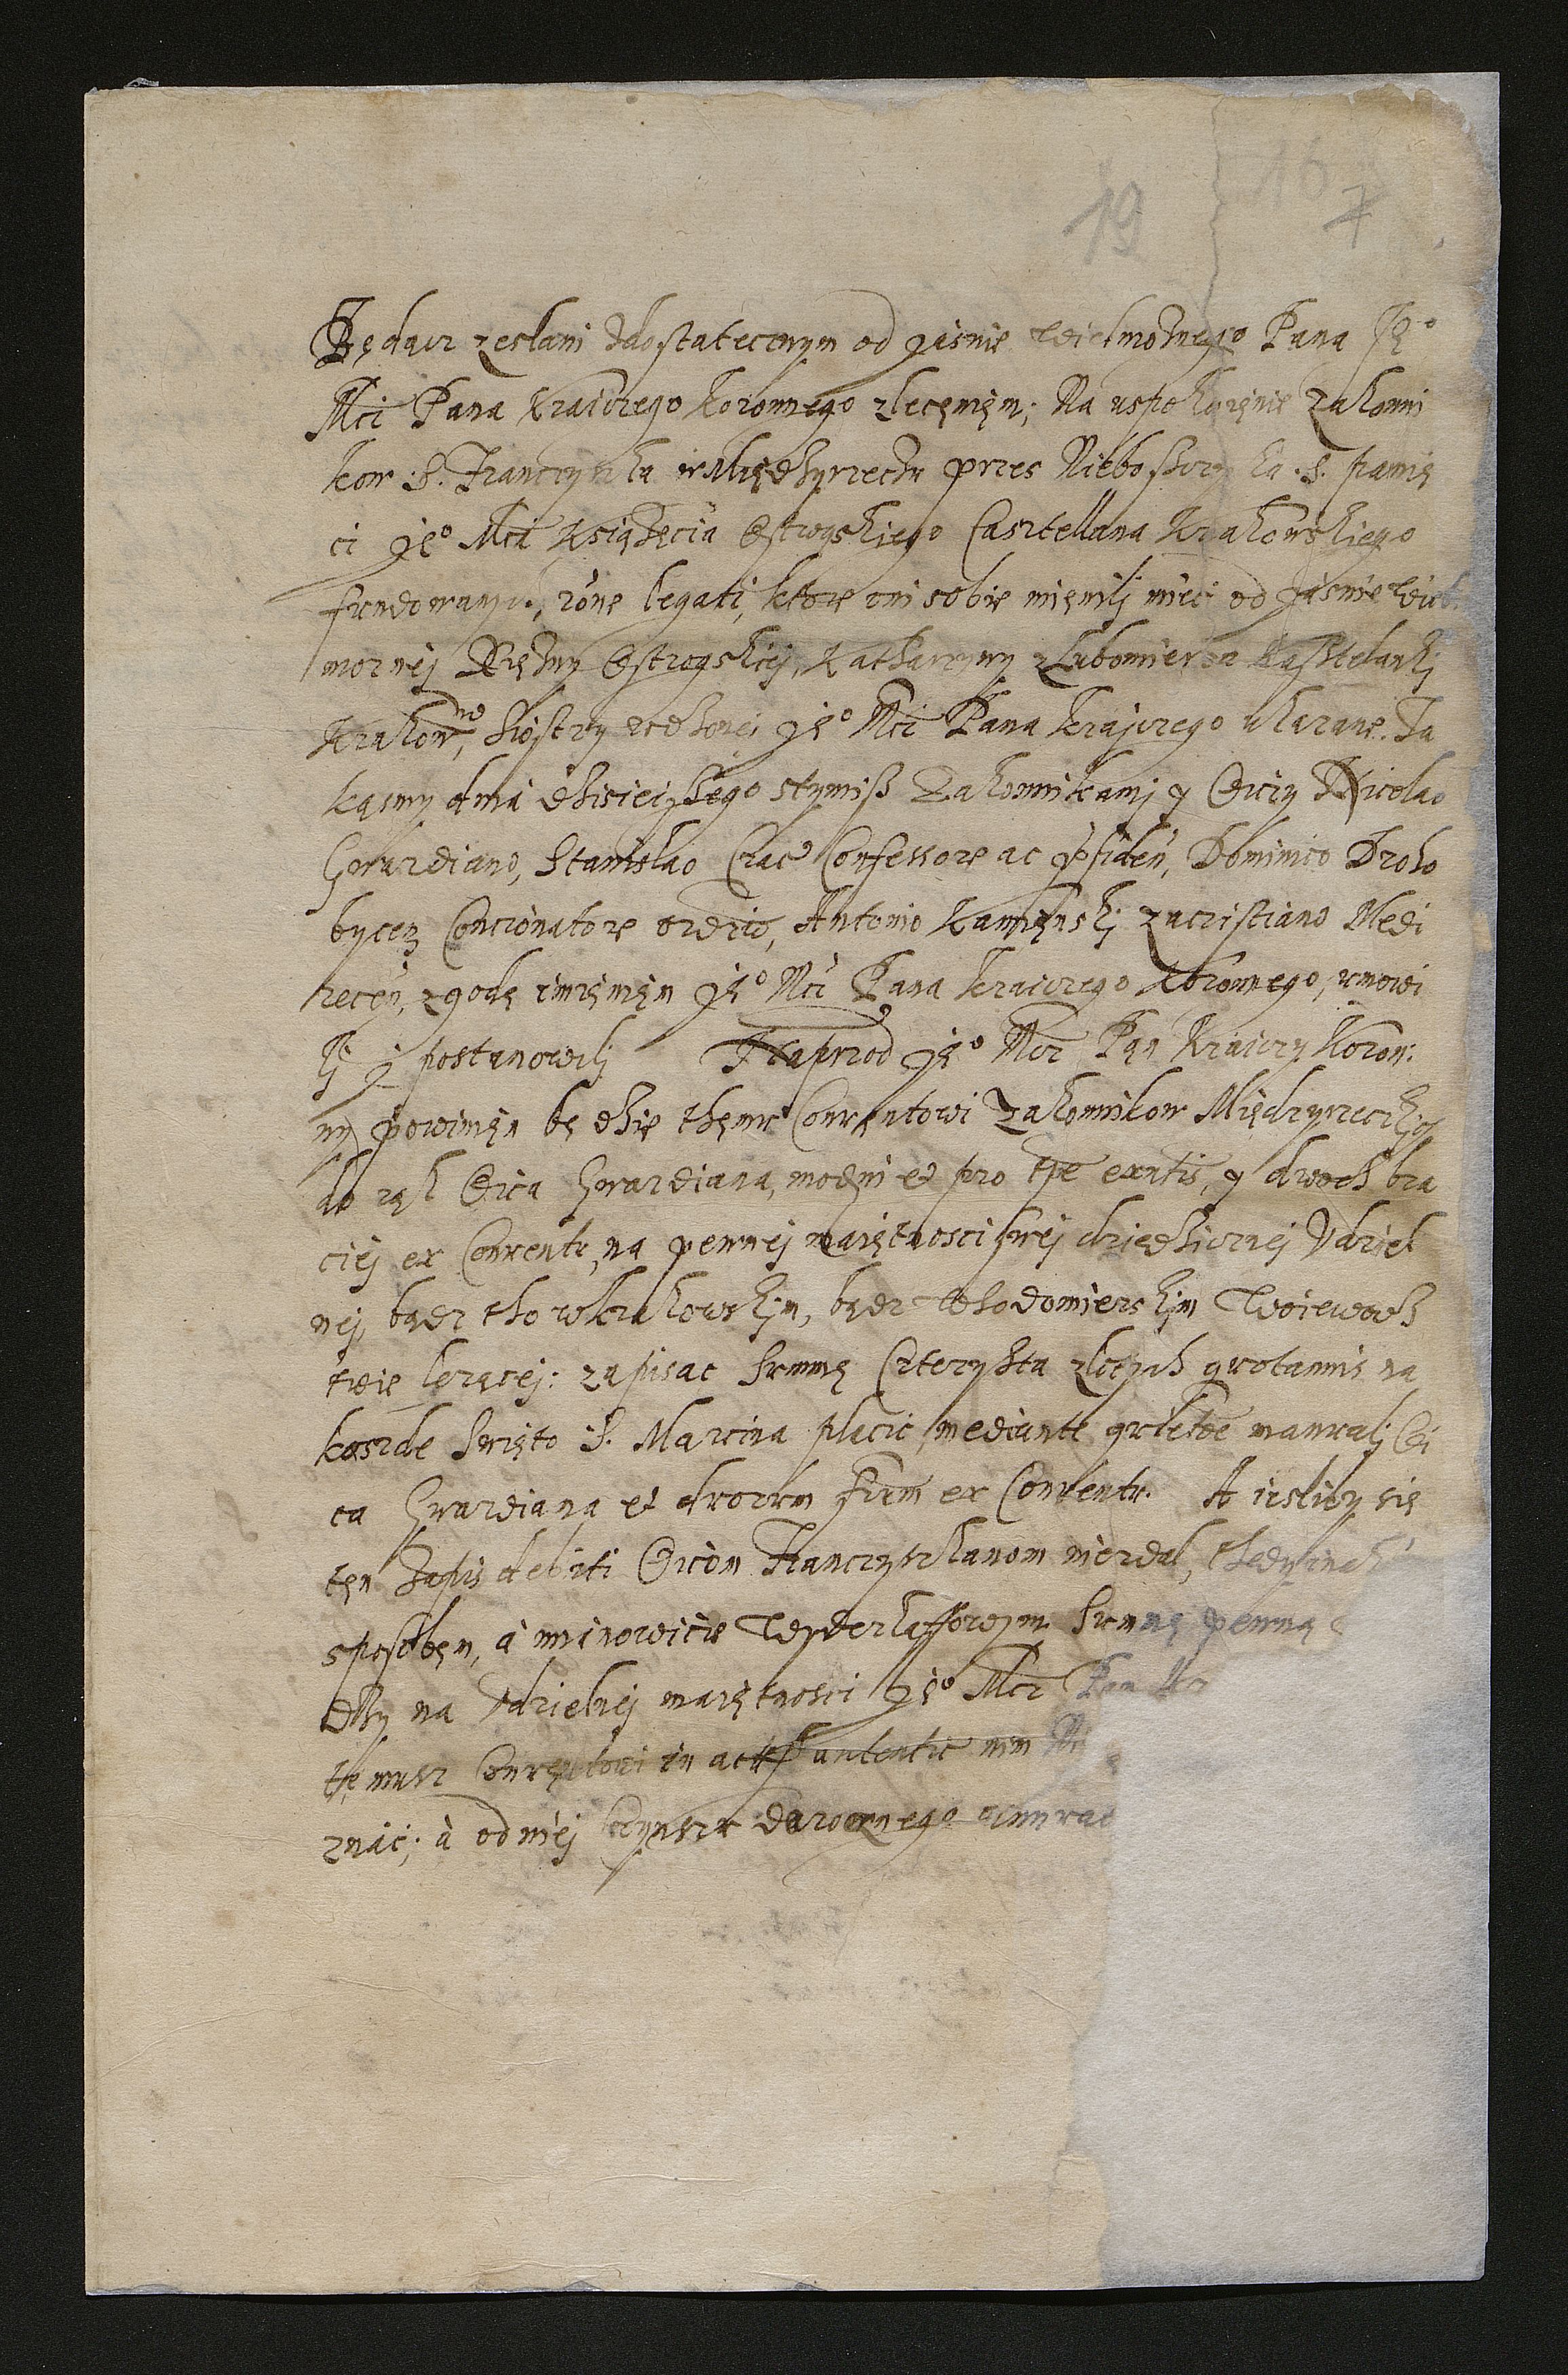 19
16
7
Będącz zesłani zdostatecznym od jasnie wielmożnego Pana Je°
Mci Pana Kraiczego koronnego zlecęnięm; Na uspokoięnie zakonni
kow S. Franczyszka w Międzyrzeczu przes Nieboszczyka S. pamię
ci Je° Mci Książęcia Ostrogskiego Casztellana Krakowskiego
fundowanych, rone legati, ktore oni sobie mięnilj miec od Jasnie Wiel
moznej Xiężny Ostrogskiej, Katharzyny z Lubomierza Kasztelankj
Krakow, Siostry rodzonej Je° Mci Pana Krajczego ukazane. Ta
kąsmy dnia dzisieiszego stymiß Zakonnikamj y Oiczy Nicolao
Gwardiano, Stanislao Crac Confessore ac psiden, Dominico Droho
bycen Concionatore ordio, Antonio Kamięnskj zacristiano Medi
recen, zgodę imięnięm Je° Mci Pana Kraiczego Koronnego, umowi
lj j postanowilj Naprzod Je° Mcz Pan Kraiczy Koron:
ny powinięn będzie thęmu Conwęntowi Zakonnikow Międzyrzeczkich
do rąk Oica Gwardiana, modni et pro tpe exntis, y dwoch bra
ciej ex Conventu, na pewnej maiętnosci swej dziedzicznej Udziel
nej, bądz tho w Krakowskjm, bądz Sendomierskjm Woiewodz
twie lezącej: zapisac Summę Czterysta zlotych quotannis na
kaszde Swięto S. Marcina placic, mediante quietõe manualj Oi
ca Gwardiana et duorum frum ex Conventu. A iesliby się
tęn Zapis debiti Oicom Franczyszkanom niezdał, thedy inak
sposobęm, a mianowicie Wyderkaffowym Summę pewną
dßy na Udzielnej maiętnosci Je° Mcz Pan Kr
tęmusz Conwęntowi in actis autentic
znac; a od niej Czynszu dorocznego